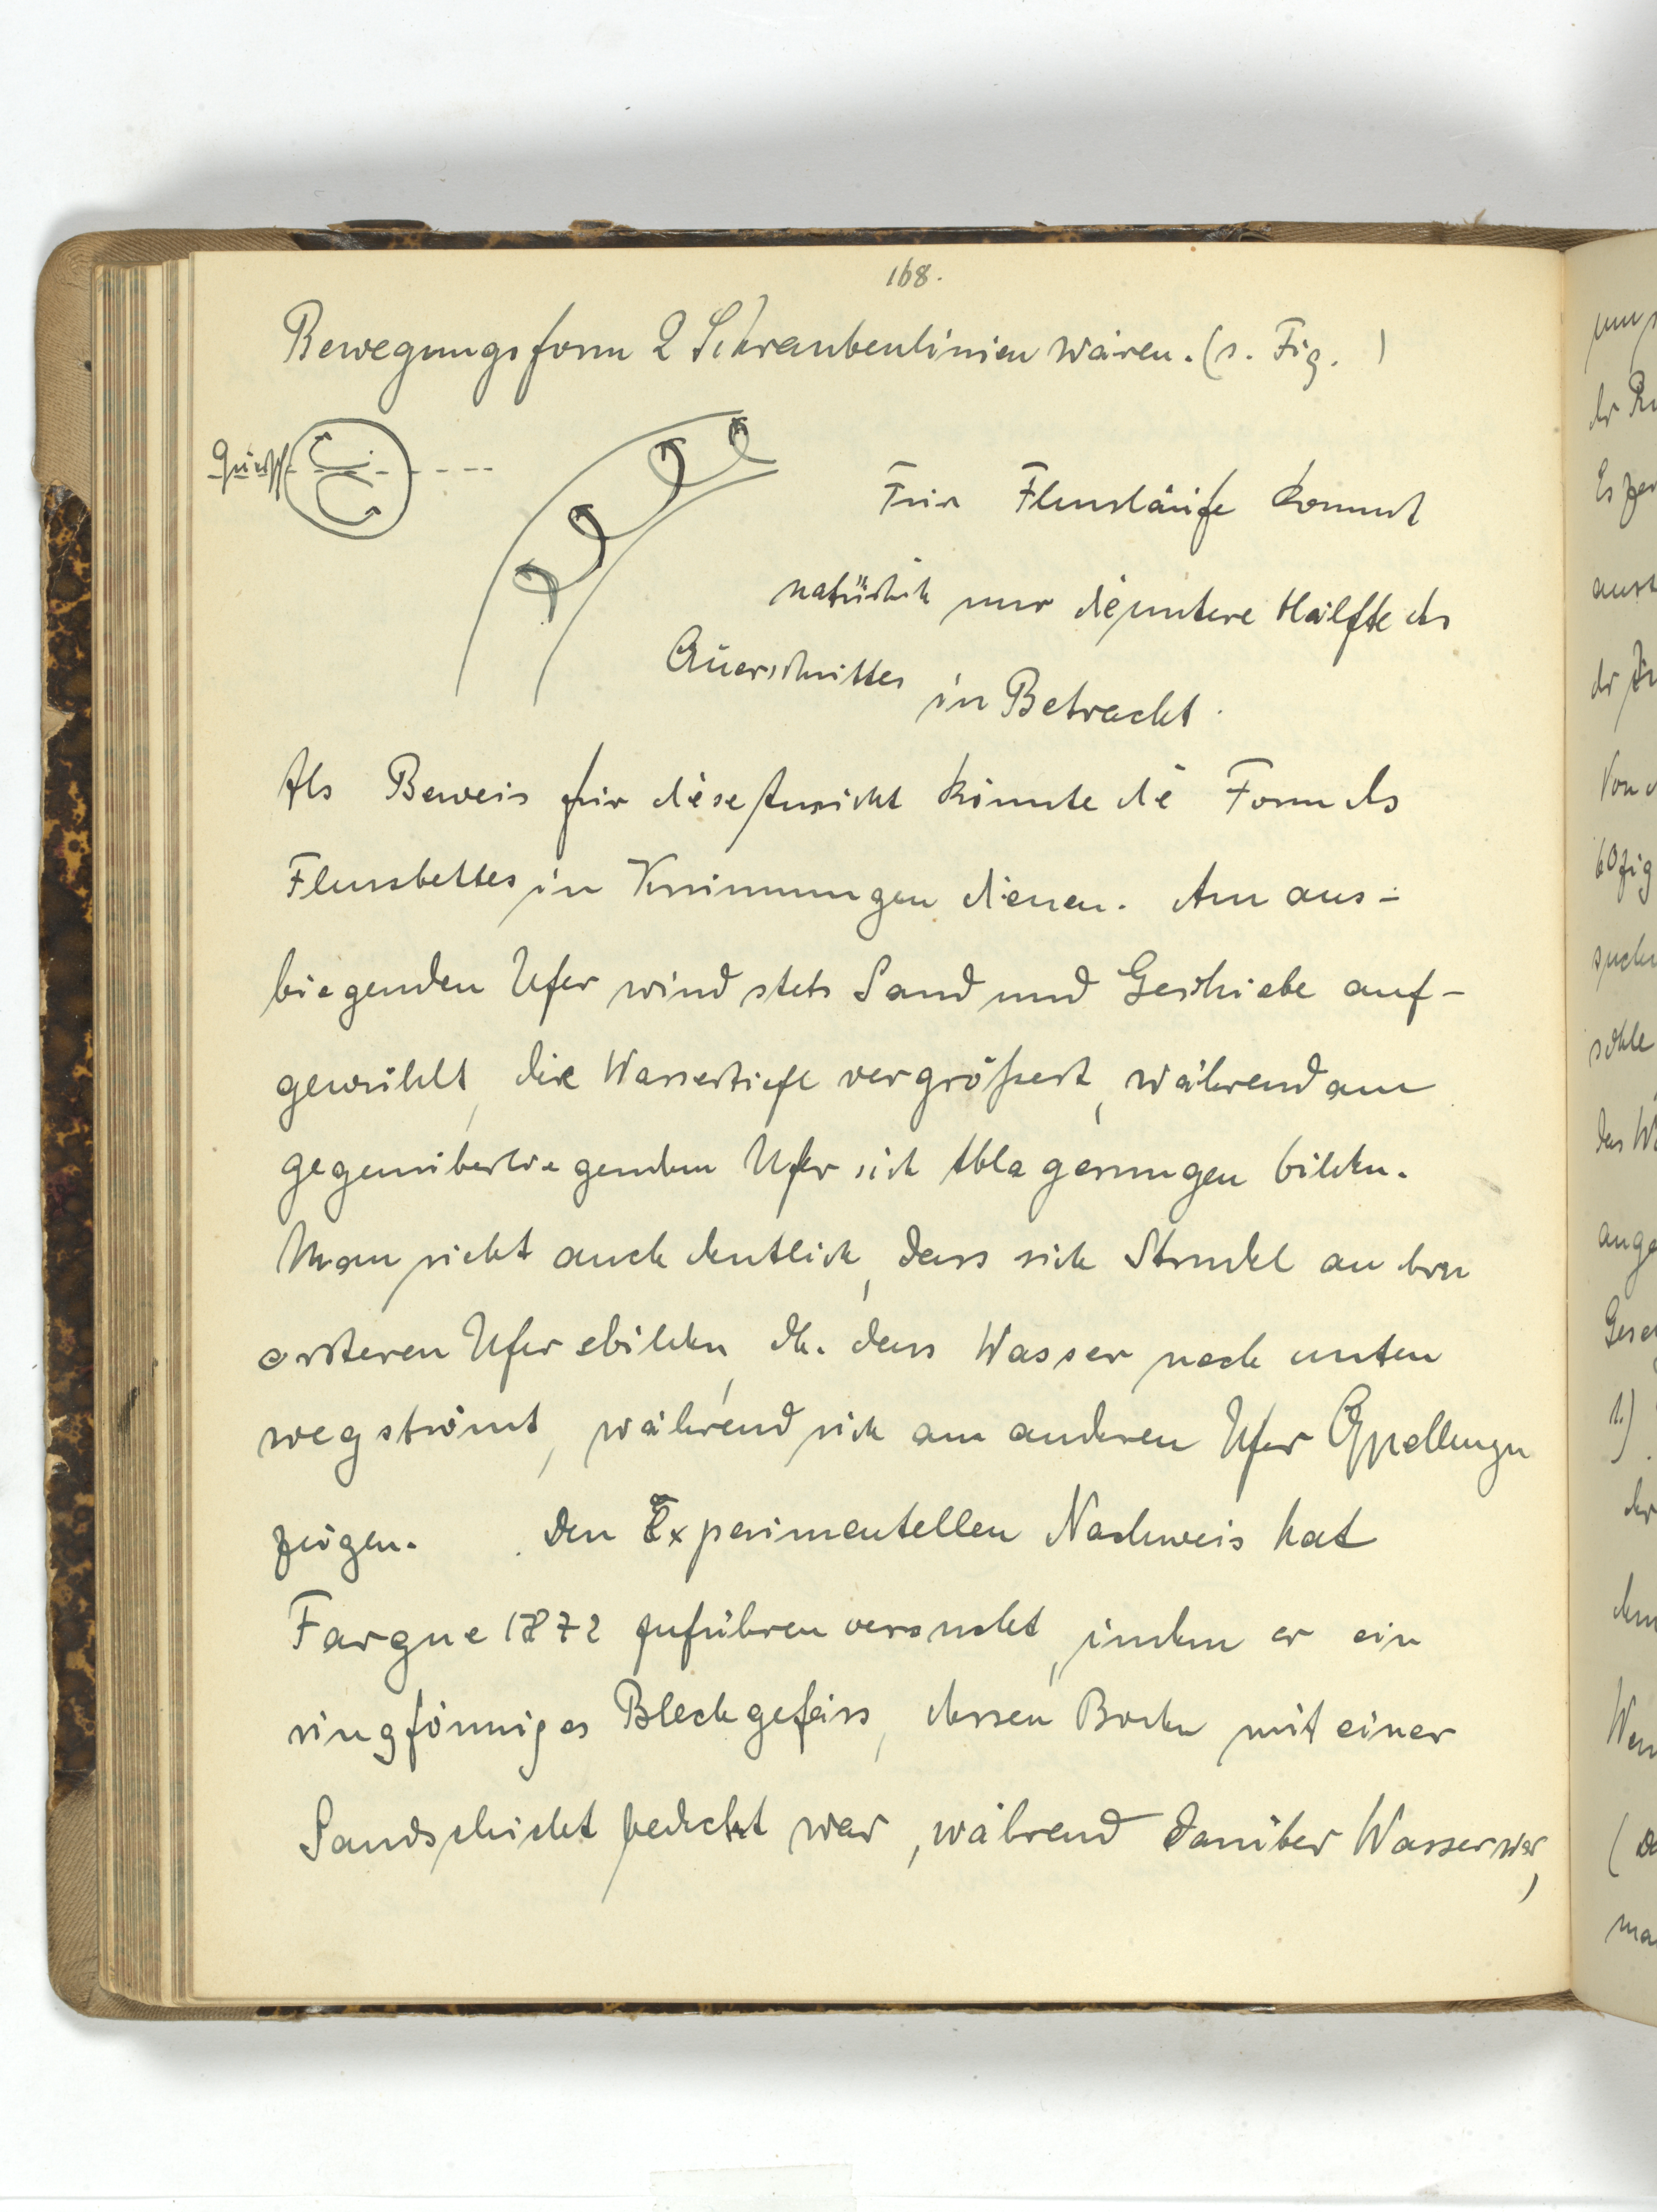 168.
Bewegungsform 2 Schraubenlinien wären. (s. Fig. )
Für Flussläufe kommt
natürlich nur die untere Hälfte des
Querschnittes in Betracht.
Als Beweis für diese Ansicht könnte die Form des
Flussbettes in Krümmungen dienen. Am aus-
biegenden Ufer wird stets Sand und Geschiebe auf-
gewühlt, die Wassertiefe vergrößert, während am
gegenüberliegenden Ufer sich Ablagerungen bilden.
Man sieht auch deutlich, dass sich Strudel an dem
ersteren Ufer bilden, dh. dass Wasser nach unten
wegströmt, während sich am anderen Ufer Quellungen
zeigen. Den Experimentellen Nachweis hat
Fargue 1872 zuführen versucht, indem er ein
ringförmiges Blechgefäss, dessen Boden mit einer
Sandschicht bedeckt war, während darüber Wasser war,